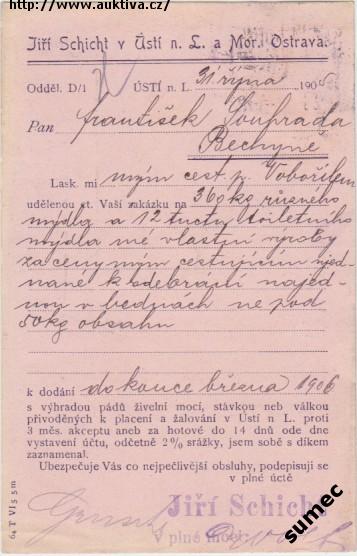 http://www.auktiva.cz/
Jiří Schicht v Ústí n. L. a Mor. Ostrava.
Odděl. D/1 ÚSTÍ n. L. 31 října 1905
Pan František Soufrada
Bechyně
Lask. mi mým cest. p. Vobořilem
udělenou ct. Vaší zakázku na 360 kg různého
mýdla a 12 tuctů toiletního
mýdla mé vlastní výroby
za ceny mým cestujícím ujed-
nané k odebrání najed-
nou v bednách ne pod
50 kg obsahu
k dodání do konce března 1906
s výhradou pádů živelní mocí, stávkou neb válkou
přivoděných k placení a žalování v Ústí n. L. proti
3 měs. akceptu aneb za hotové do 14 dnů ode dne
vystavení účtu, odčetně 2% srážky, jsem sobě s díkem
zaznamenal.
Ubezpečuje Vás co nejpečlivější obsluhy, podepisuji se
v plné úctě
Jiří Schicht
V plné moci:
64 T VI 5 5 m
sumec